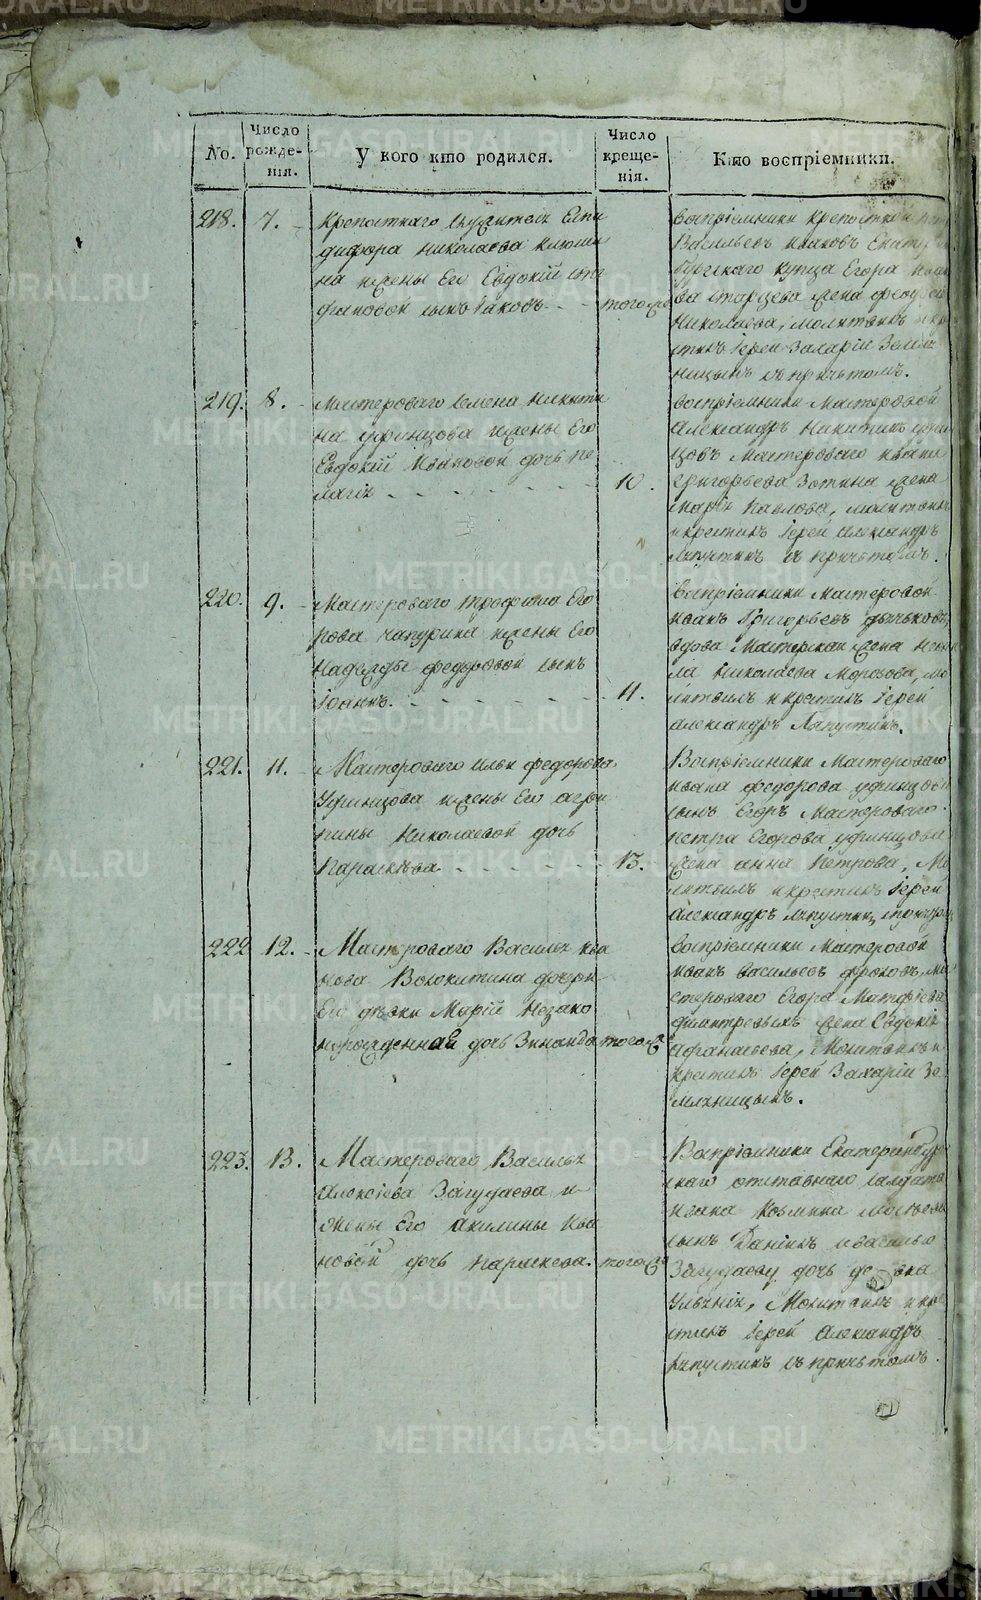 No.
Число рожденія.
У кого кто родился.
Число крещенія.
Кто воспріемники.
218. 7.
Крепостнаго служителя Спи
дифора Николаева Клюши
на жены Его Евдокіи Сте
фановой сынъ Іаковъ
тогоже
Воспріемники крепостной
Васильевъ Екатерин
бургскаго купца Егора Ива
ва Старцева жена
Николаева, молитвилъ и кре
стилъ Іерей ЗахарійЗемля
ницынъ съ причьтомъ.
219. 8.
Мастероваго Семена Никити
на Уфинцова жены Его
Евдокіи Ивановой дочь Пе
лагія
10.
Воспріемники Мастеровой
Александръ Никитинъ Уфин
цовъ Мастероваго Ивана
Григорьева Зотина жена
Марія Павлова, молитвилъ
и крестилъ Іерей Александръ
Ляпустинъ съ причьтомъ.
220. 9.
Мастероваго Трофима Его
рова Чапурина жены Его
Надежды Федоровой сынъ
Іоаннъ.
11.
Воспріемники Мастеровой
Иванъ Григорьевъ
вдова Мастерская жена
Николаева Морозова, мо
литвилъ и крестилъ Іерей
Александръ Ляпустинъ.
221. 11.
Мастероваго Ильи Федорова
Уфинцова жены Его Агри
пины Николаевой дочь
Параскева
13.
Воспріемники Мастероваго
Ивана Федорова Уфинцова
сынъ Егоръ Мастероваго
Петра Егорова Уфинцова
жена Анна Петрова, Мо
литвилъ и крестилъ Іерей
Александръ Ляпустинъ
222 12.
Мастероваго Василья Ива
нова Волокитина дочери
Его девки Маріи Незако
норожденная дочь Зинаида
тогоже
Воспріемники Мастеровой
Иванъ Васильевъ Фроловъ, Ма
стероваго Егора Матфіева
жена Евдокія
Афанасьева, Молитвилъ и
крестилъ Іерей Захарій Зе
мляницынъ.
223. 13.
Мастероваго Василья
Алексіева Загудаева и
жены Его Акилины Ива
новой дочь Параскева.
тогоже
Воспріемники Екатеринбур
скаго отставнаго салдата
Ивана Козмина
сынъ Даніилъ и Василью
Загудаеву дочь девка
Ульянія, Молитвилъ и кре
стилъ Іерей Александръ
Ляпустинъ съ причьтомъ.
METRIKI.GASO-URAL.RU